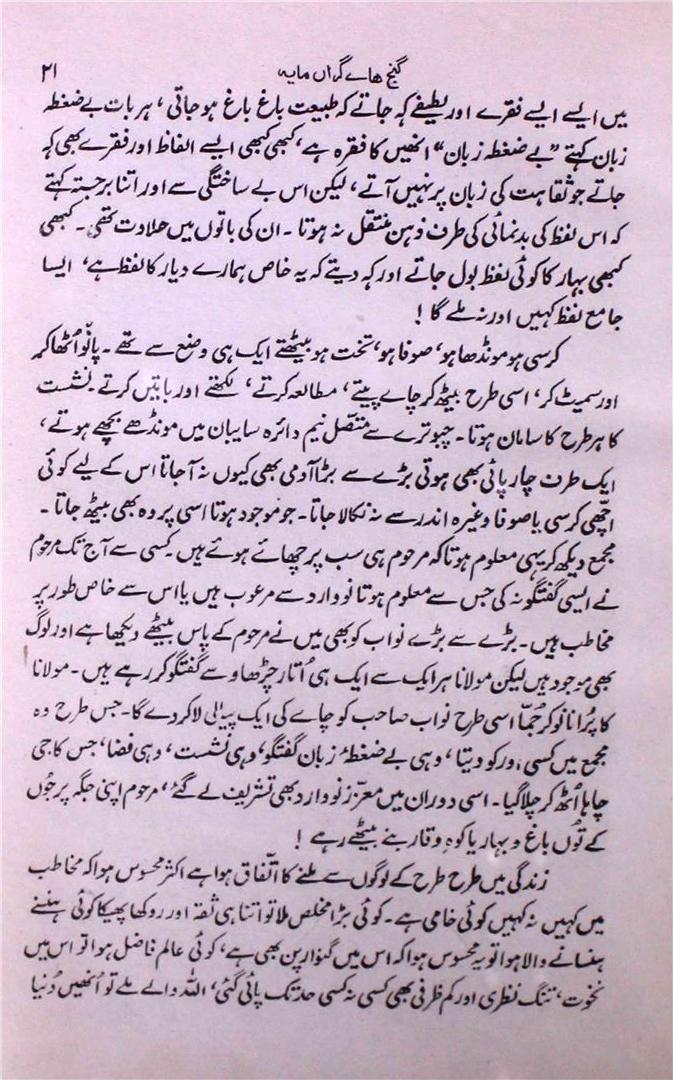 ۲۱ گنج ھاے گراں مایہ
میں ایسے ایسے فقرے اور لطیفے کہہ جاتے کہ طبیعت باغ باغ ہو جاتی، ہر بات بے ضغطہ
زبان کہتے ”بے ضغطہ زبان“ انھیں کا فقرہ ہے، کبھی کبھی ایسے الفاظ اور فقرے بھی کہہ
جاتے جو ثقاہت کی زبان پر نہیں آتے، لیکن اس بے ساختگی سے اور اتنا برجستہ کہتے
کہ اس لفظ کی بدنمائی کی طرف ذہن منتقل نہ ہوتا ۔ ان کی باتوں میں حلاوت تھی ۔ کبھی
کبھی بہار کا کوئی لفظ بول جاتے اور کہہ دیتے کہ یہ خاص ہمارے دیار کا لفظ ہے، ایسا
جامع لفظ کہیں اور نہ ملے گا !
کرسی ہو مونڈھا ہو، صوفا ہو، تخت ہو بیٹھتے ایک ہی وضع سے تھے ۔ پانْو اُٹھا کر
اور سمیٹ کر، اسی طرح بیٹھ کر چاے پیتے، مطالعہ کرتے، لکھتے اور باتیں کرتے ۔ نشست
کا ہر طرح کا سامان ہوتا ۔ چبوترے سے متصل نیم دائرہ سایبان میں مونڈھے بچھے ہوتے،
ایک طرف چار پائی بھی ہوتی بڑے سے بڑا آدمی بھی کیوں نہ آجاتا اس کے لیے کوئی
اچّھی کرسی یا صوفا وغیرہ اندر سے نہ نکالا جاتا ۔ جو موجود ہوتا اسی پر وہ بھی بیٹھ جاتا ۔
مجمع دیکھ کر یہی معلوم ہوتا کہ مرحوم ہی سب پر چھائے ہوئے ہیں ۔ کسی سے آج تک مرحوم
نے ایسی گفتگو نہ کی جس سے معلوم ہوتا نووارد سے مرعوب ہیں یا اس سے خاص طور پر
مخاطب ہیں ۔ بڑے سے بڑے نواب کو بھی میں نے مرحوم کے پاس بیٹھے دیکھا ہے اور لوگ
بھی موجود ہیں لیکن مولانا ہر ایک سے ایک ہی اُتار چڑھاو سے گفتگو کر رہے ہیں ۔ مولانا
کا پُرانا نوکر جُمّا اسی طرح نواب صاحب کو چاے کی ایک پیالی لا کر دے گا ۔ جس طرح وہ
مجمع میں کسی اور کو دیتا، وہی بے ضغطۂ زبان گفتگو، وہی نشست، وہی فضا، جس کا جی
چاہا اُٹھ کر چلا گیا ۔ اسی دوران میں معزّز نووارد بھی تشریف لے گئے، مرحوم اپنی جگہ پر جوُں
کے توُں باغ و بہار یا کوہِ وقار بنے بیٹھے رہے !
زندگی میں طرح طرح کے لوگوں سے ملنے کا اتّفاق ہوا ہے اکثر محسوس ہوا کہ مخاطب
میں کہیں نہ کہیں کوئی خامی ہے ۔ کوئی بڑا مخلص ملا تو اتنا ہی ثقہ اور روکھا پھیکا کوئی ہنسنے
ہنسانے والا ہوا تو یہ محسوس ہوا کہ اس میں گنوارپن بھی ہے، کوئی عالم فاضل ہوا تو اس میں
نخوت، تنگ نظری اور کم ظرفی بھی کسی نہ کسی حد تک پائی گئی، اللہ والے ملے تو اُنھیں دُنیا